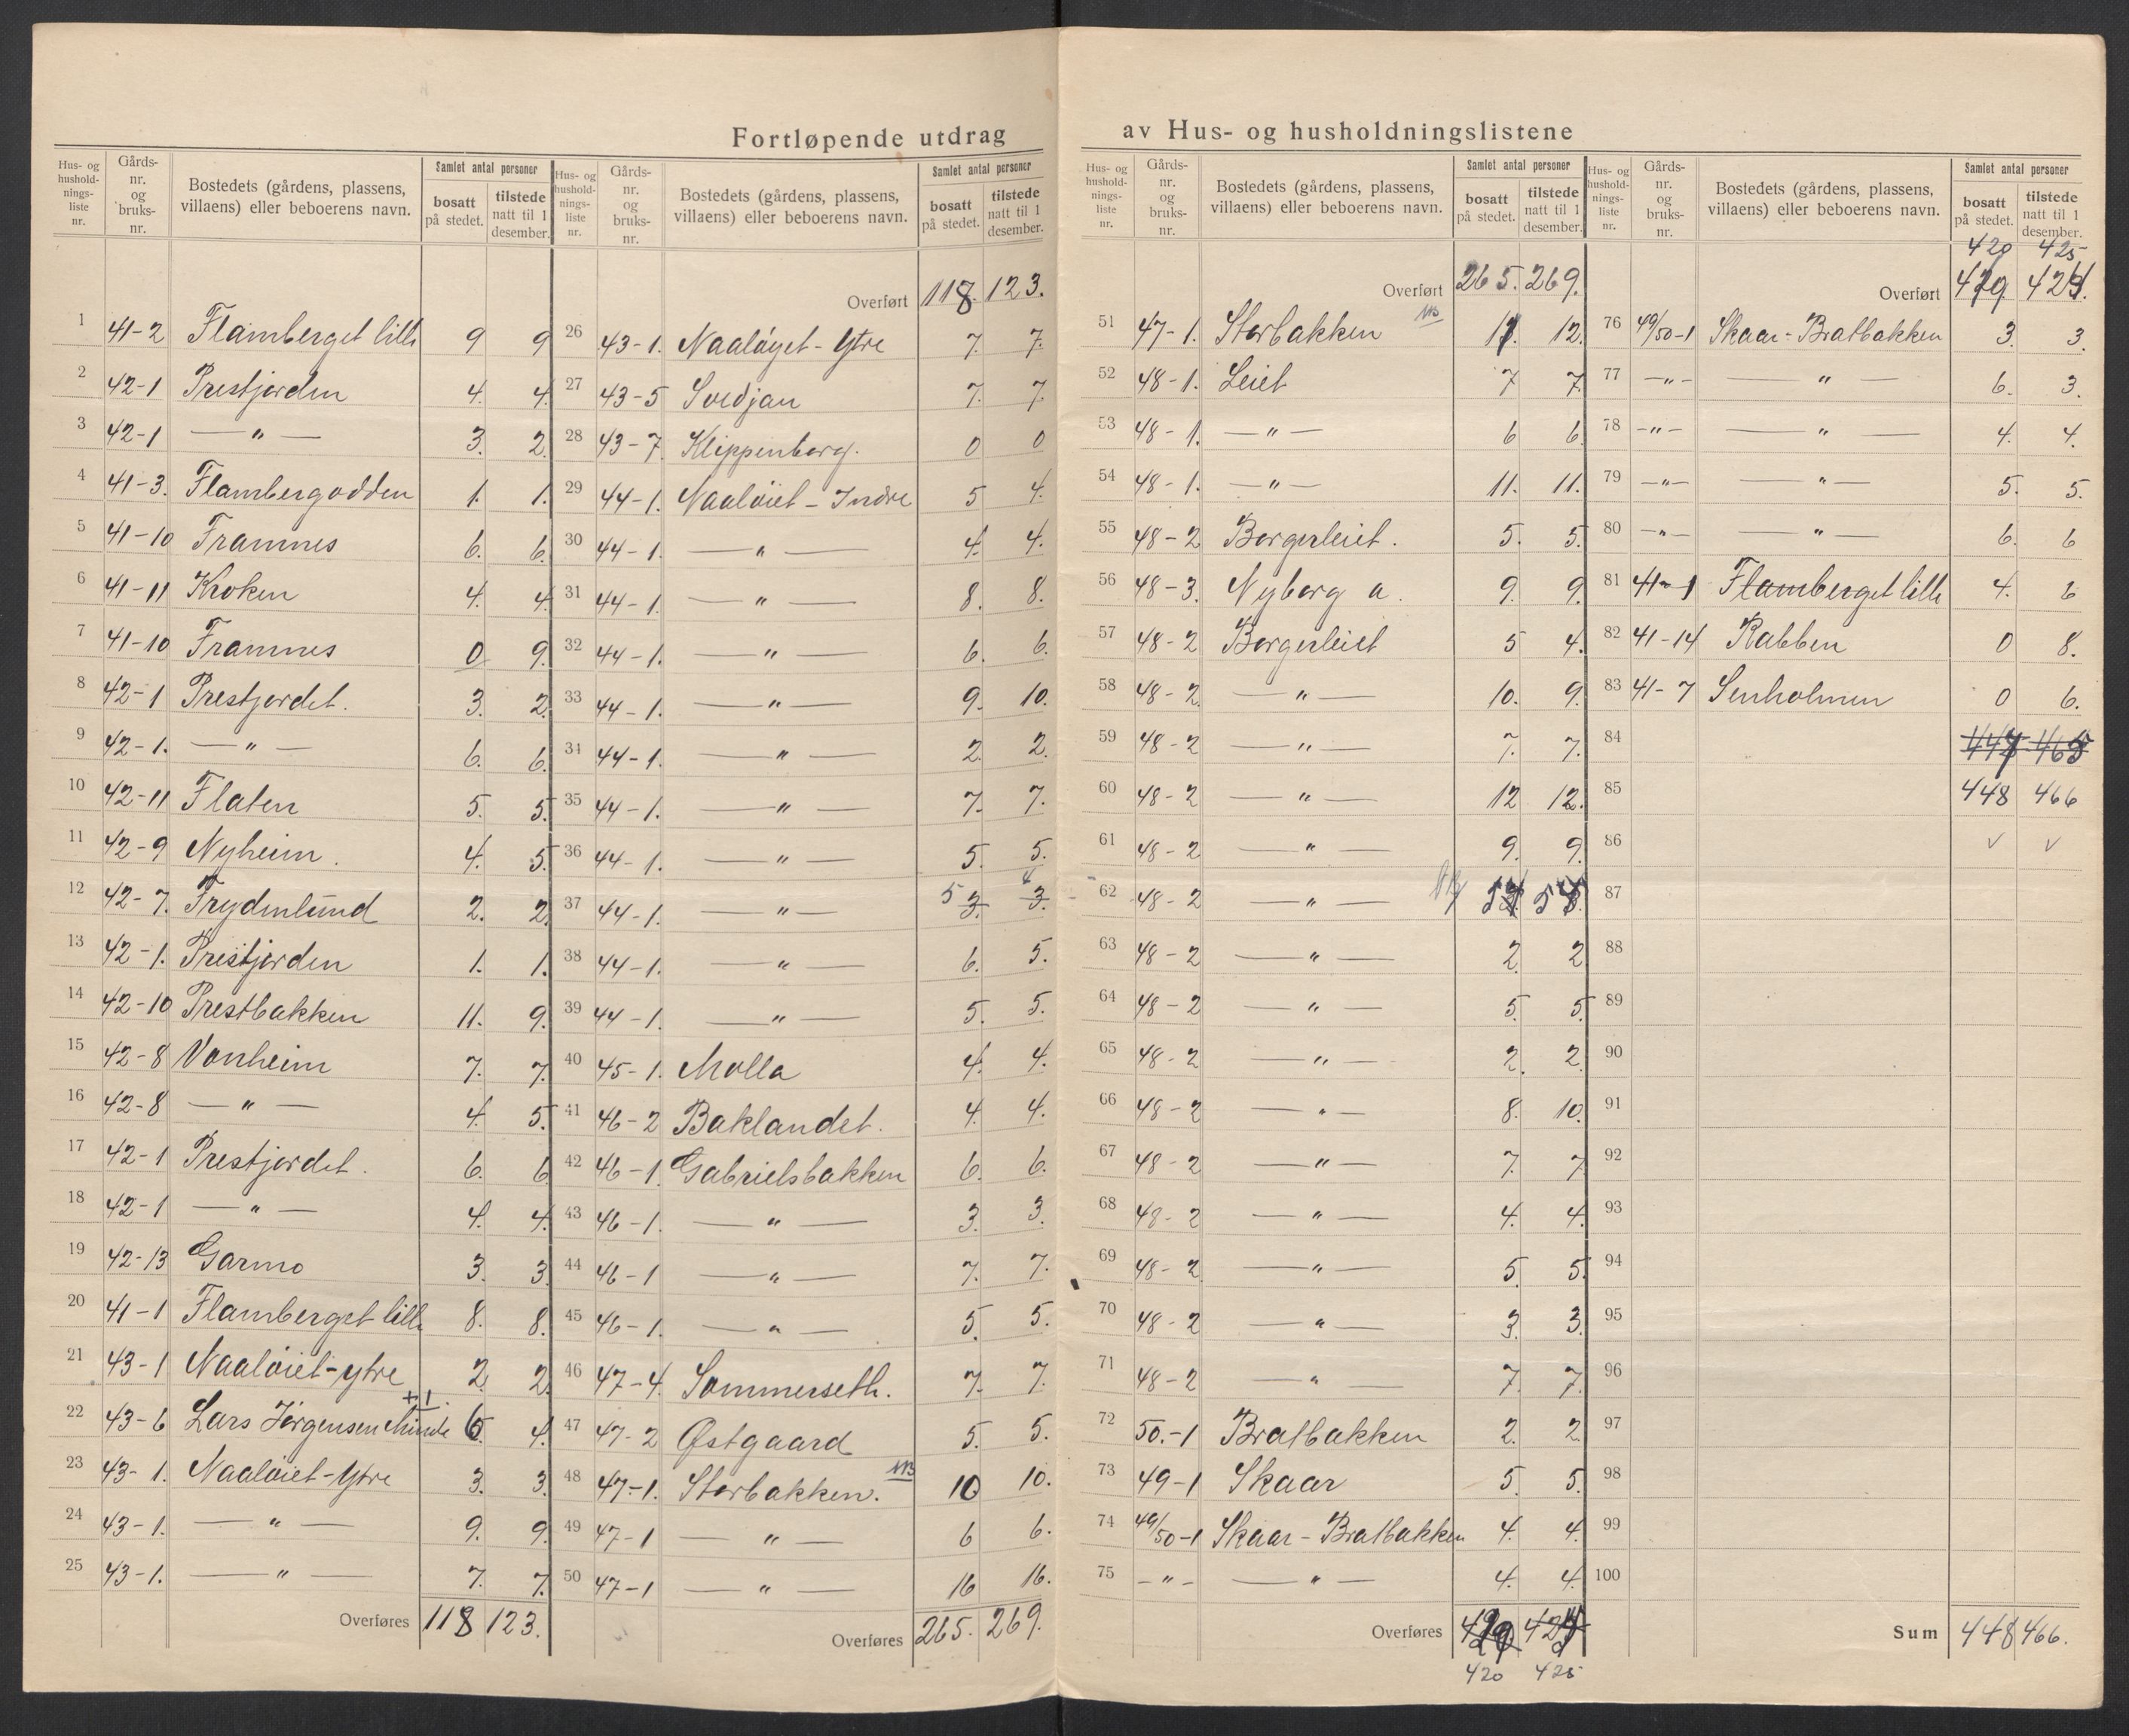 Fortløpende utdrag av Hus- og husholdningslistene
Hus- og husholdningsliste nr. Gårds- nr. og bruks- nr. Bostedets (gårdens, plassens, villaens) eller beboerens navn. Samlet antal personer bosatt på stedet. tilstede natt til 1 desember.
1 41-2 Flamberget lille 9 9
2 42-1 Prestjorden 4. 4.
3 42-1 — " — 3. 2.
4 41-3. Flambergodden 1. 1.
5 41-10 Framnes 6. 6.
6 41-11 Kroken 4. 4.
7 41-10 Framnes 0 9.
8 42-1 Prestjordet. 3. 2.
9 42-1. — " — 6. 6.
10 42-11 Flaten 5. 5.
11 42-9 Nyheim. 4. 5.
12 42-7. Frydenlund 2. 2.
13 42-1. Prestjorden 1. 1.
14 42-10 Prestbakken 11. 9.
15 42-8 Vonheim 7. 7.
16 42-8 — " — 4. 5.
17 42-1 Prestjordet. 6. 6
18 42-1 — " — 4. 4.
19 42-13 Garmo 3. 3.
20 41-1 Flamberget lille 8. 8.
21 43-1 Naaløiet-ytre 2. 2.
+1.
22 43-6 Lars Jørgensen Minde 6. 4.
23 43-1. Naaløiet-Ytre 3. 3.
24 43-1. — " — 9. 9.
25 43-1. — " — 7. 7.
Overføres 118 123.
Hus- og husholdningsliste nr. Gårds- nr. og bruks- nr. Bostedets (gårdens, plassens, villaens) eller beboerens navn. Samlet antal personer bosatt på stedet. tilstede natt til 1 desember.
Overført 118. 123.
26 43-1. Naaløyet-Ytre 7. 7.
27 43-5 Svedjan 7. 7.
28 43-7. Klippenborg. 0 0
29 44-1. Naaløiet - Indre 5 4.
30 44-1. — " — 4. 4.
31 44-1. — " — 8. 8.
32 44-1. — " — 6. 6.
33 44-1. — " — 9. 10.
34 44-1. — " — 2. 2.
35 44-1. — " — 7. 7.
36 44-1. — " — 5. 5.
37 44-1. — " — 5 3. 4 3.
38 44-1. — " — 6. 5.
39 44-1. — " — 5. 5.
40 45-1. Molla 4. 4.
41 46-2 Baklandet. 4. 4.
42 46-1. Gabrielsbakken 6. 6.
43 46-1. — " — 3. 3.
44 46-1 — " — 7. 7.
45 46-1. — " — 5. 5.
46 47-4. Sommerseth. 7. 7.
47 47-2 Østgaard 5. 5.
48 47-1. Storbakken. NB 10 10.
49 47-1 — " — 6 6.
50 47-1 — " — 16 16.
Overføres 265. 269.
Hus- og husholdningsliste nr. Gårds- nr. og bruks- nr. Bostedets (gårdens, plassens, villaens) eller beboerens navn. Samlet antal personer bosatt på stedet. tilstede natt til 1 desember.
Overført 265. 269.
51 47-1. Storbakken NB 11. 12.
52 48-1. Leiet 7 7.
53 48-1. — " — 6 6.
54 48-1. — " — 11. 11.
55 48-2 Borgerleiet. 5. 5.
56 48-3. Nyborg a. 9. 9.
57 48-2 Borgerleiet 5 4.
58 48-2. — " — 10. 9.
59 48-2 — " — 7. 7.
60 48-2 — " — 12 12.
61 48-2 — " — 9. 9.
62 48-2 — " —
63 48-2 — " — 2. 2
64 48-2 — " — 5. 5.
65 48-2 — " — 2. 2.
66 48-2 — " — 8. 10.
67 48-2 — " — 7. 7
68 48-2 — " — 4. 4.
69 48-2 — " — 5. 5.
70 48-2 — " — 3. 3.
71 48-2 — " — 7. 7.
72 50.-1 Bratbakken 2. 2
73 49-1 Skaar 5. 5.
74 49/50-1 Skaar - Bratbakken 4. 4.
75 -"- — " — 4. 4.
Overføres
420 425
Hus- og husholdningsliste nr. Gårds- nr. og bruks- nr. Bostedets (gårdens, plassens, villaens) eller beboerens navn. Samlet antal personer bosatt på stedet. tilstede natt til 1 desember.
420 425
Overført 419 424.
76 49/50-1 Skaar - Bratbakken 3. 3.
77 -"- — " — 6. 3.
78 -"- — " — 4. 4.
79 -"- — " — 5. 5.
80 -"- — " — 6. 6
81 41-1 Flamberget lille 4. 6
82 41-14 Rabben 0 8.
83 41-7 Senholmen 0 6.
84 447 465
85 448 466
86 v v
87
88
89
90
91
92
93
94
95
96
97
98
99
100
Sum 448 466.